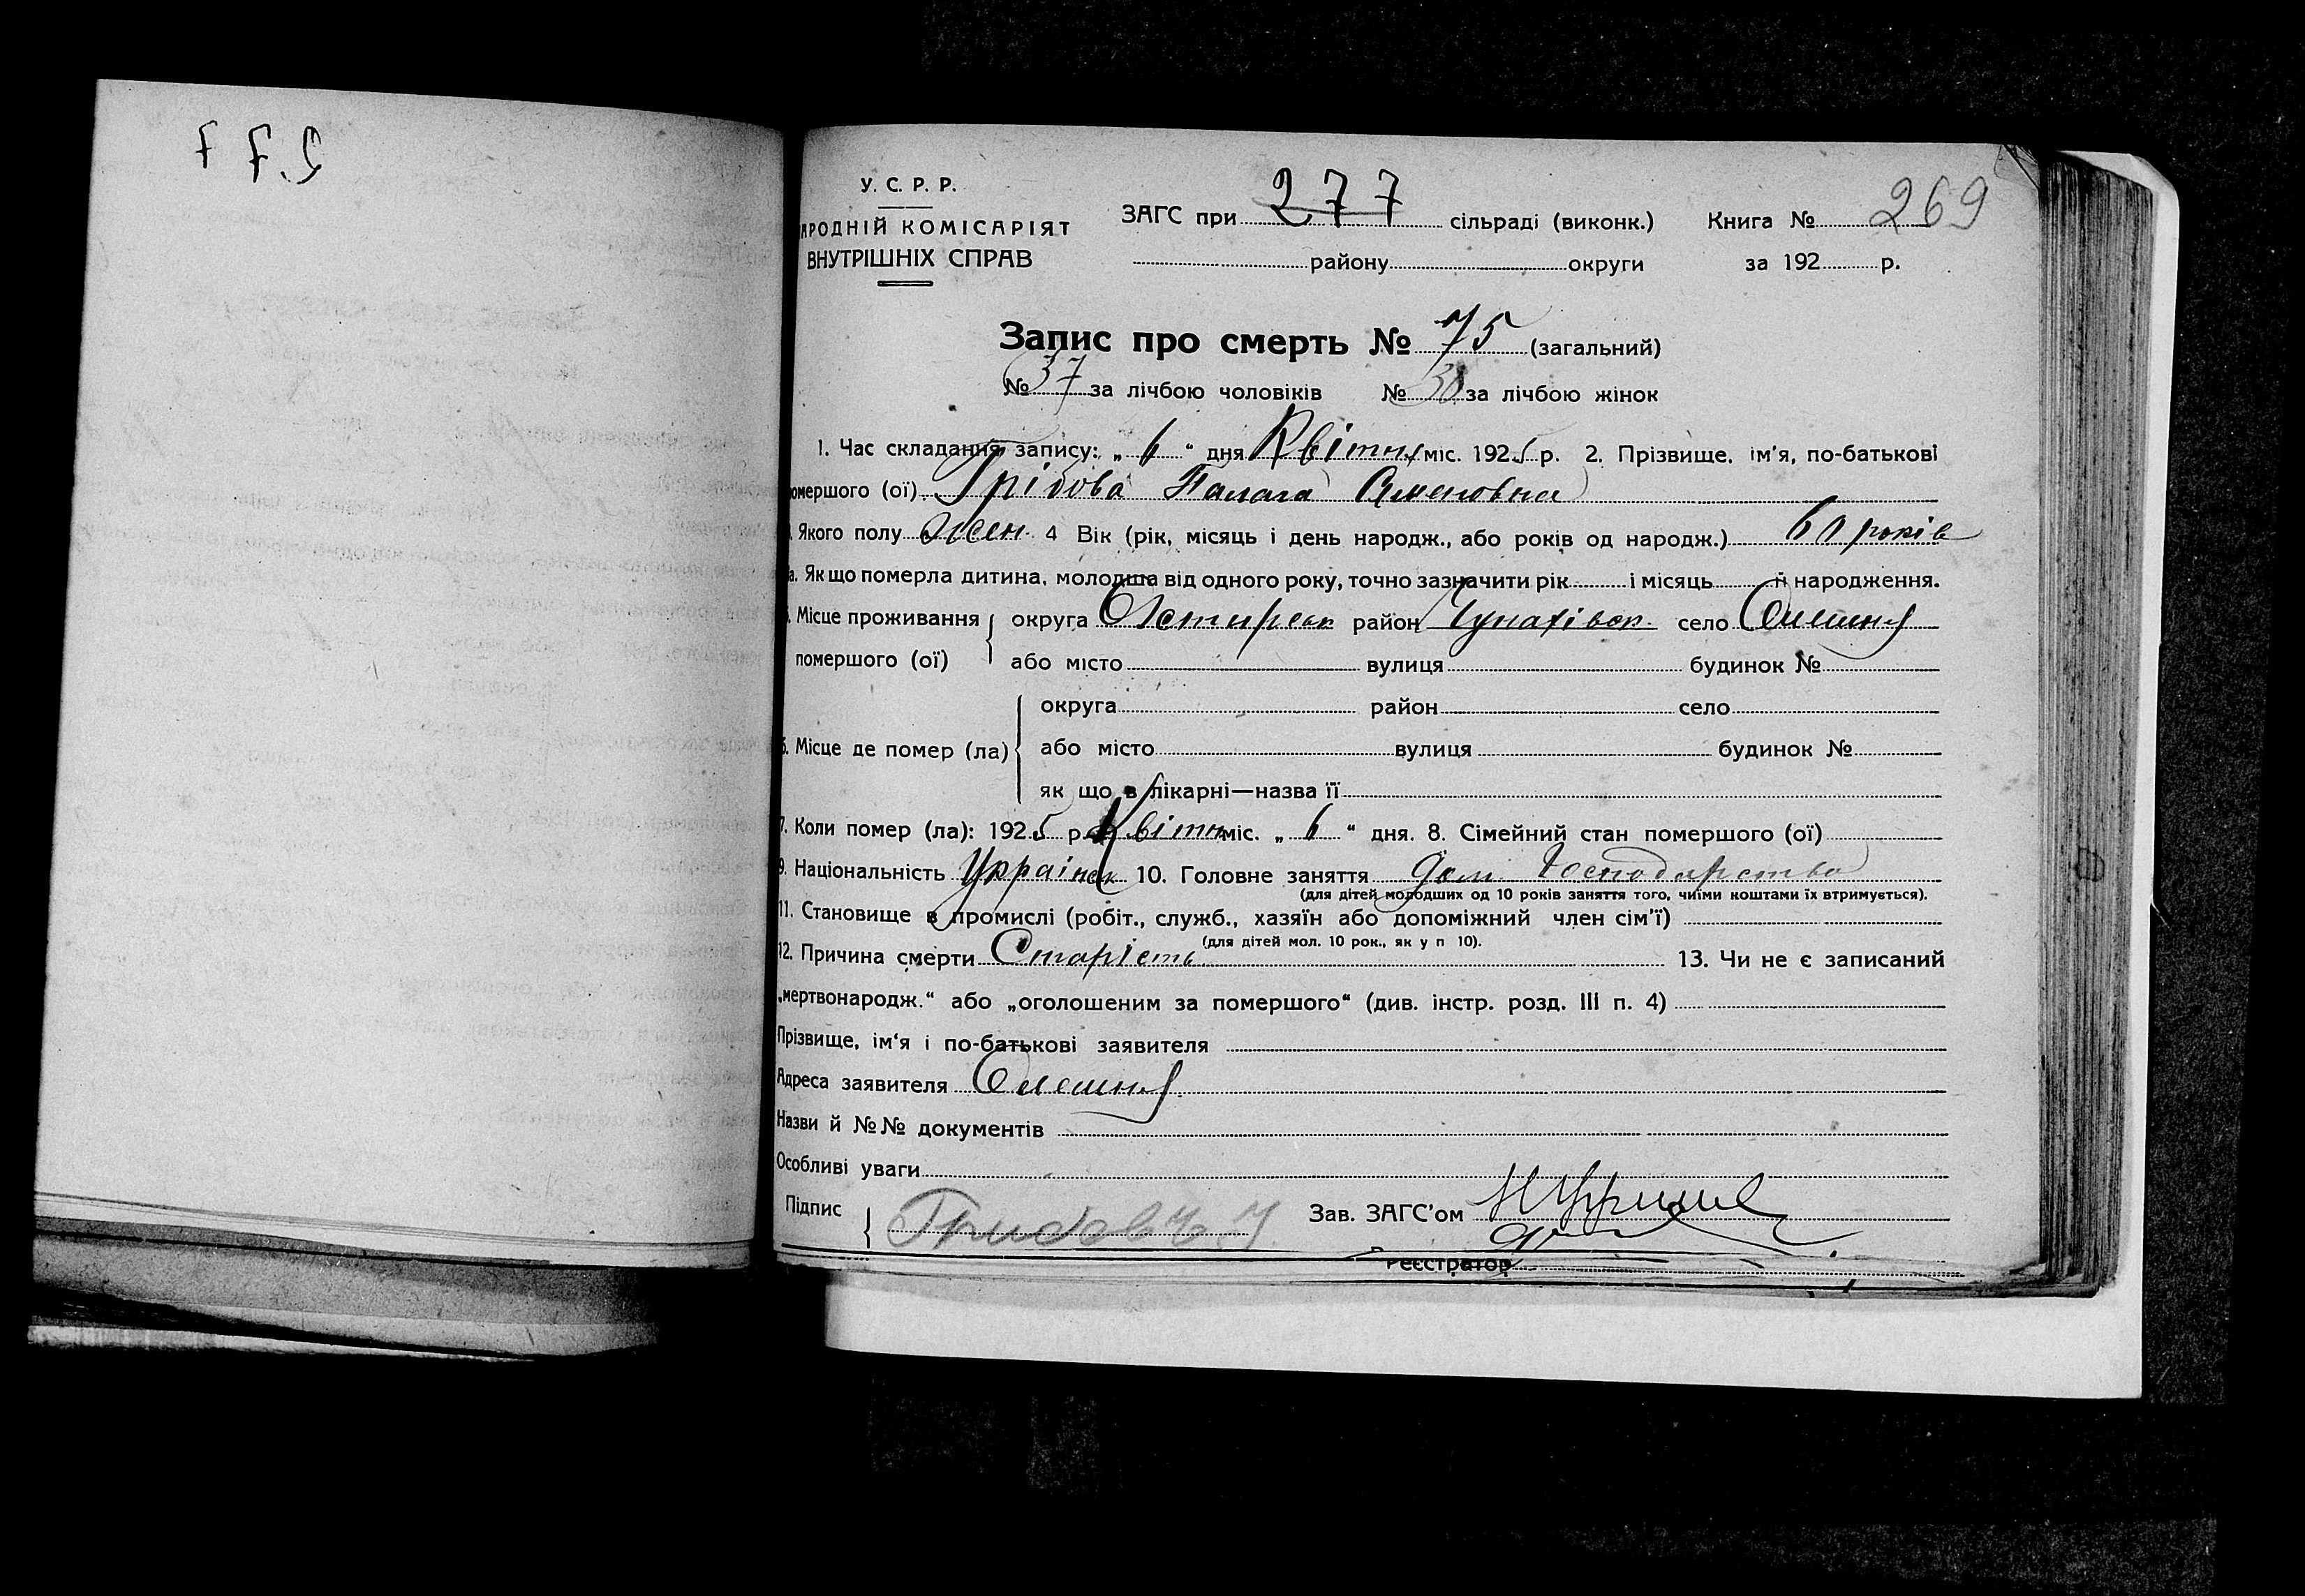 277
У. С. Р. Р.
АРОДНІЙ КОМІСАРІЯТ
ВНУТРІШНІХ СПРАВ
ЗАГС при 277 сільраді (виконк.)
району округи
Книга № 269
за 192 р.
Запис про смерть № 75 (загальний)
№ 37 за лічбою чоловіків № 38 за лічбою жінок
1. Час складання запису: „ 6 “ дня Квітня міс. 1925 р. 2. Прізвище, ім'я, по-батькові
омершого (ої) Грібова Палага
. Якого полу жен. 4 Вік (рік, місяць і день народж., або років од народж.) 60 років
а. Як що померла дитина, молодша від одного року, точно зазначити рік і місяць її народження.
. Місце проживання округа район село Олешня
помершого (ої) або місто вулиця будинок №
округа район село
6. Місце де помер (ла) або місто вулиця будинок №
як що в лікарні—назва її
7. Коли помер (ла): 1925 р. Квітня міс. „ 6 “ дня. 8. Сімейний стан помершого (ої)
9. Національність Українск 10. Головне заняття дом. Господарство
(для дітей молодших од 10 років заняття того, чиїми коштами їх втримується).
11. Становище в промислі (робіт., служб., хазяїн або допоміжний член сім'ї)
(для дітей мол. 10 рок., як у п 10).
12. Причина смерти Старість 13. Чи не є записаний
„мертвонародж.“ або „оголошеним за помершого“ (див. інстр. розд. III п. 4)
Прізвище, ім‘я і по-батькові заявителя
Адреса заявителя Олешня
Назви й №№ документів
Особливі уваги
Підпис Зав. ЗАГС'ом
Реєстратор